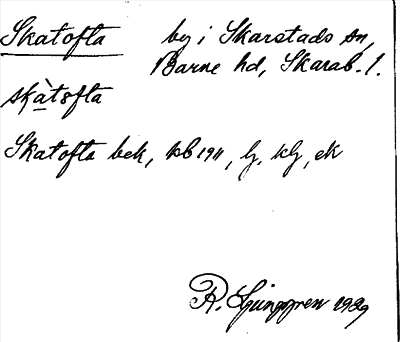 Skatofta by i Skarstads sn,
Barne hd, Skarab. l.
skàtofta
Skatofta bek, kb 1911, lj, klj, ek
R. Ljunggren 1929